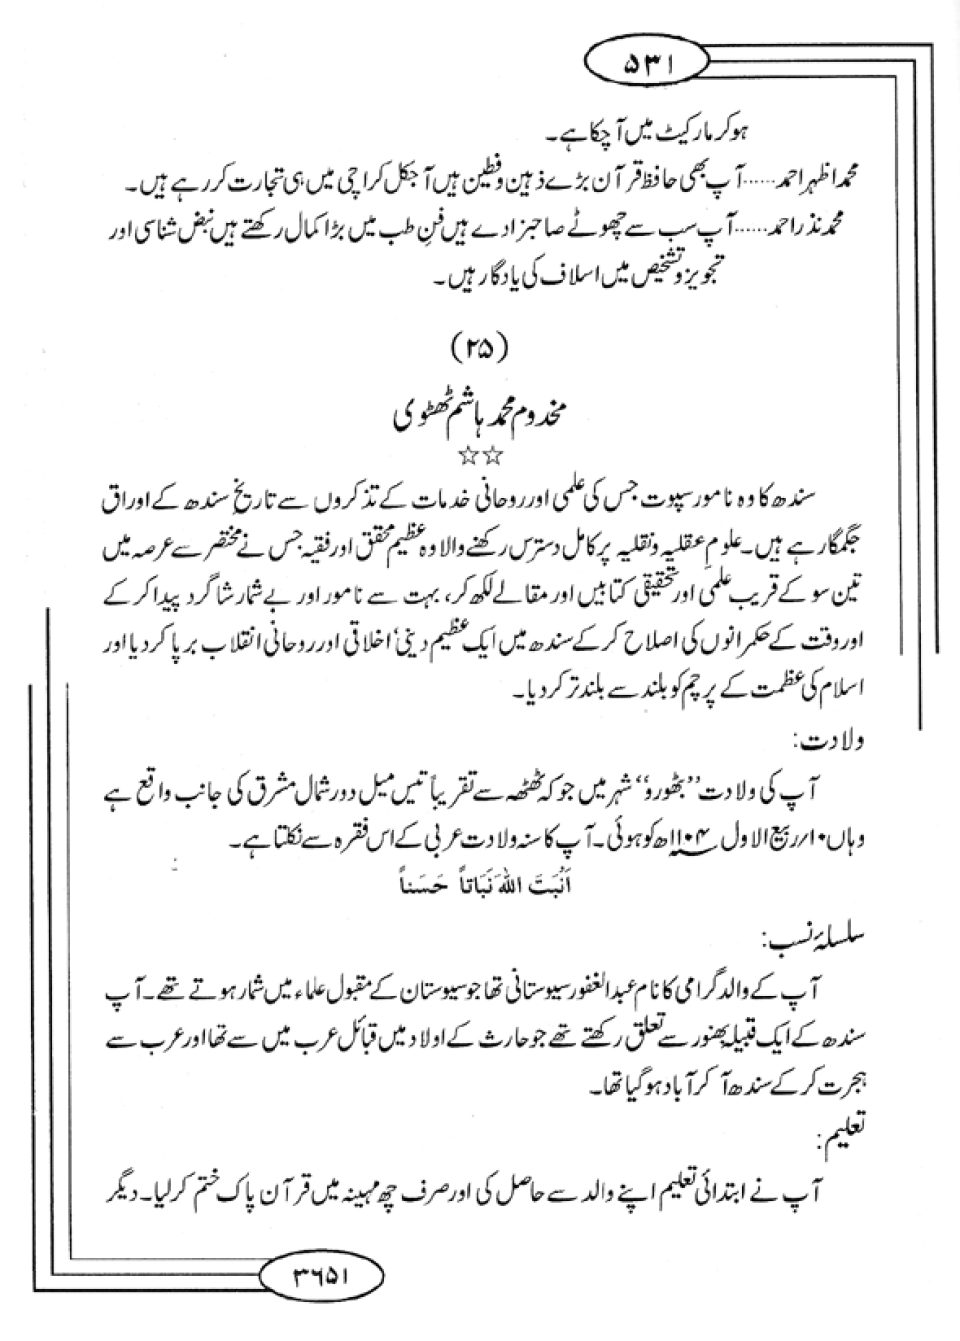 ۵۳۱
ہوکر مارکیٹ میں آچکا ہے۔
محمد اظہر احمد......آپ بھی حافظ قرآن بڑے ذہین و فطین ہیں آجکل کراچی میں ہی تجارت کر رہے ہیں۔
محمد نذر احمد......آپ سب سے چھوٹے صاحبزادے ہیں فنِ طب میں بڑا کمال رکھتے ہیں نبض شناسی اور
تجویز و تشخیص میں اسلاف کی یادگار ہیں۔
(۲۵)
مخدوم محمد ہاشم ٹھٹوی
☆☆
سندھ کا وہ نامور سپوت جس کی علمی اور روحانی خدمات کے تذکروں سے تاریخِ سندھ کے اوراق
جگمگا رہے ہیں۔ علومِ عقلیہ و نقلیہ پر کامل دسترس رکھنے والا وہ عظیم محقق اور فقیہ جس نے مختصر سے عرصہ میں
تین سو کے قریب علمی اور تحقیقی کتابیں اور مقالے لکھ کر، بہت سے نامور اور بے شمار شاگرد پیدا کر کے
اور وقت کے حکمرانوں کی اصلاح کر کے سندھ میں ایک عظیم دینی' اخلاقی اور روحانی انقلاب برپا کر دیا اور
اسلام کی عظمت کے پرچم کو بلند سے بلند تر کر دیا۔
ولادت:
آپ کی ولادت ’’بٹھورو‘‘ شہر میں جو کہ ٹھٹھہ سے تقریباً تیس میل دور شمال مشرق کی جانب واقع ہے
وہاں ۱۰/ربیع الاول ۱۱۰۴ھ کو ہوئی۔ آپ کا سنہ ولادت عربی کے اس فقرہ سے نکلتا ہے۔
اَنْبَتَ اللّٰهُ نَبَاتاً حَسَناً
سلسلۂ نسب:
آپ کے والد گرامی کا نام عبدالغفور سیوستانی تھا جو سیوستان کے مقبول علماء میں شمار ہوتے تھے۔ آپ
سندھ کے ایک قبیلہ پنھور سے تعلق رکھتے تھے جو حارث کے اولاد میں قبائل عرب میں سے تھا اور عرب سے
ہجرت کر کے سندھ آ کر آباد ہو گیا تھا۔
تعلیم:
آپ نے ابتدائی تعلیم اپنے والد سے حاصل کی اور صرف چھ مہینہ میں قرآن پاک ختم کر لیا۔ دیگر
۳۶۵۱